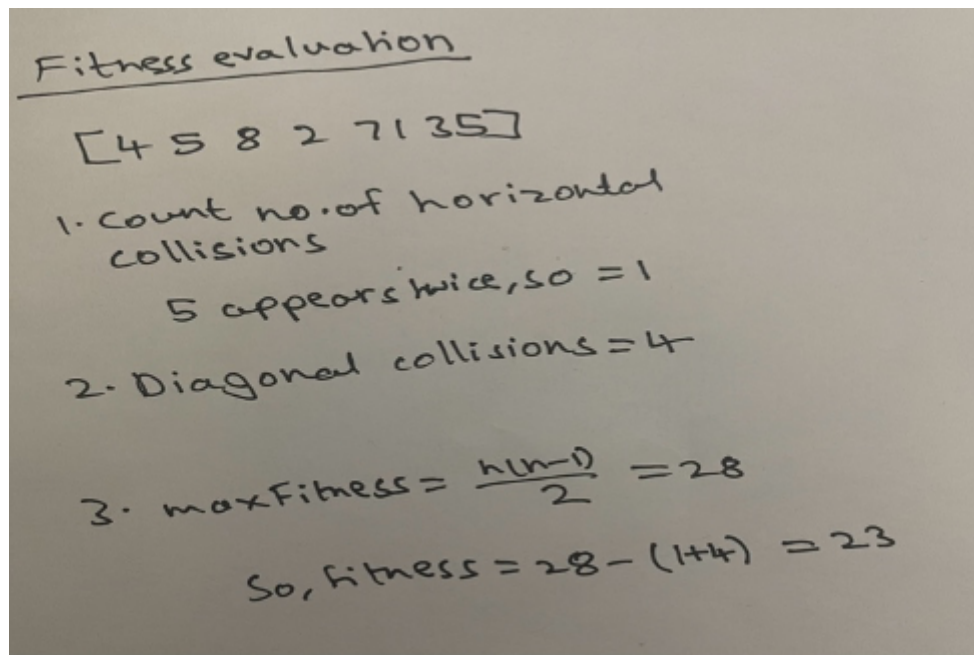 Fitness evaluation
[4 5 8 2 7 1 3 5]
1. Count no. of horizontal
collisions
5 appears twice, so = 1
2. Diagonal collisions = 4
3. maxFitness = n(n-1)/2 = 28
So, fitness = 28 - (1+4) = 23